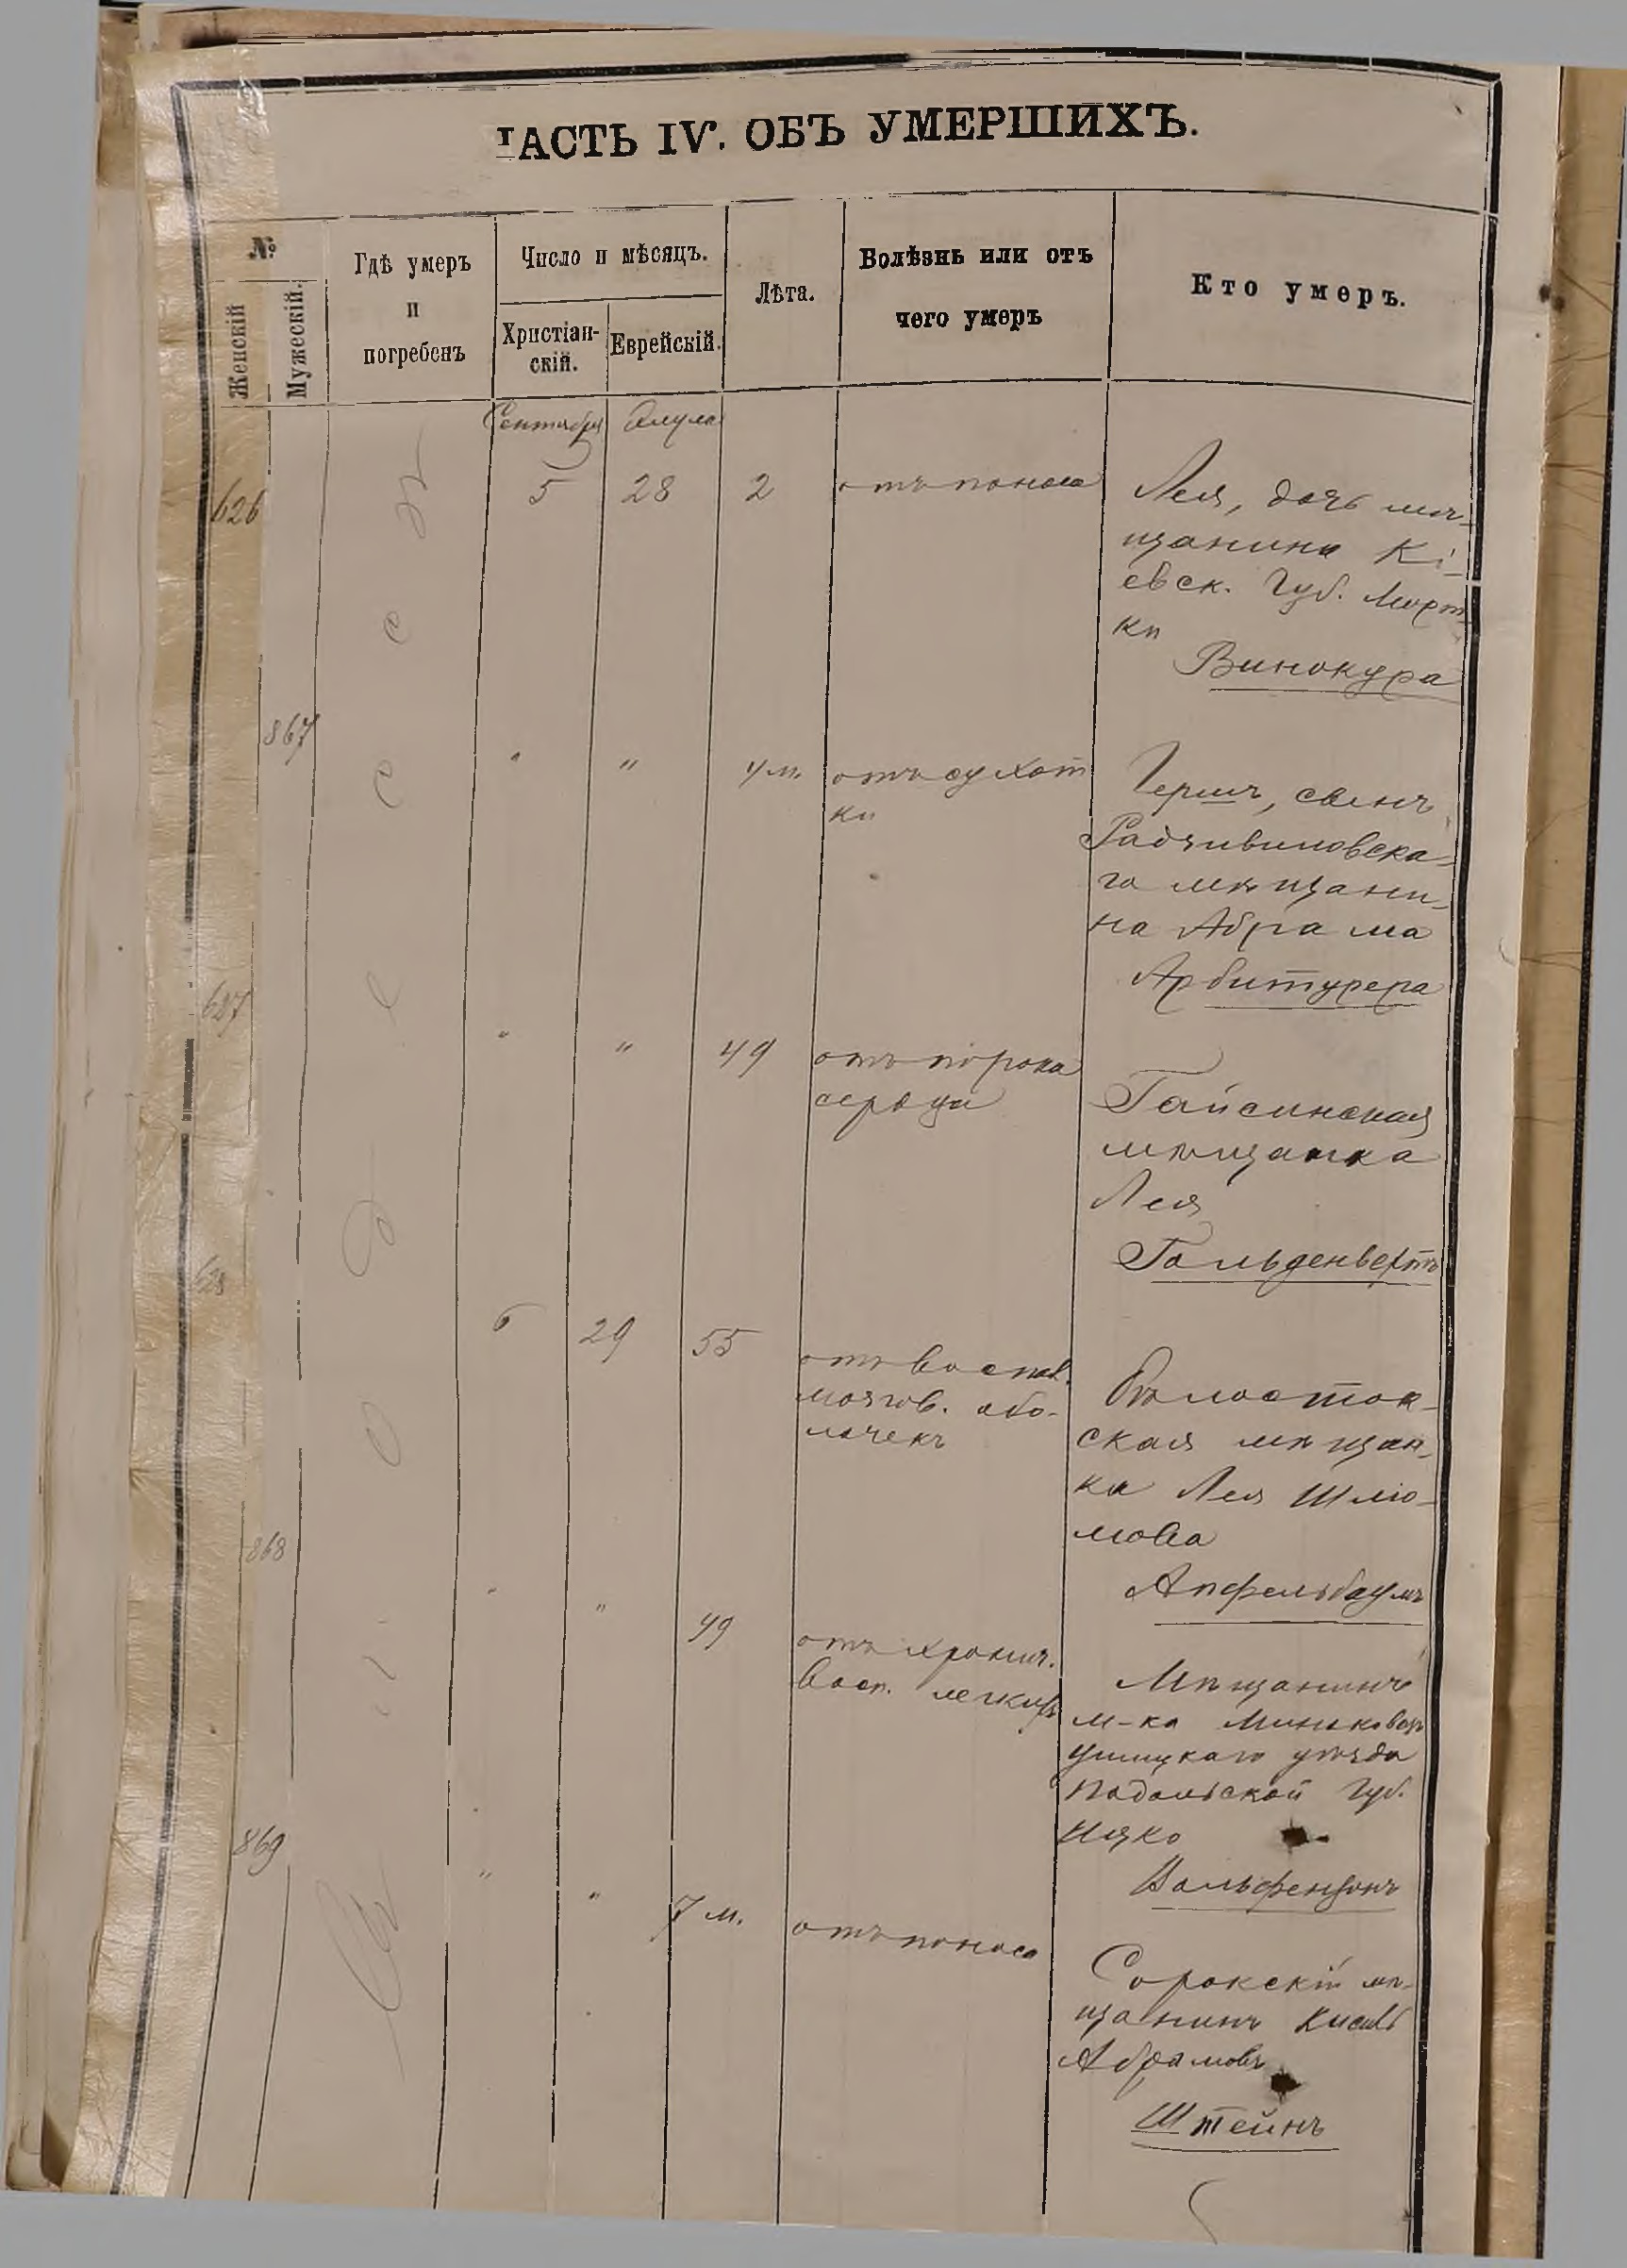 ЧАСТЬ IV. ОБЪ УМЕРШИХЪ.
№
Женскій
Мужескій.
Гдѣ умеръ
и
погребенъ
Число и мѣсяцъ.
Христіан-
скій.
Еврейскій.
Лѣта.
Болѣзнь или отъ
чего умеръ
Кто умеръ.
Въ Одессѣ
Сентября Элула
626 5 28 2 отъ поноса
Лея, дочь мѣ-
щанина Кі-
евск. Губ. Морт-
ки
Винокура
867 " " 4 м. отъ сухот
ки
Гершъ, сынъ
Радзивиловска-
го мѣщани-
на Абрама
Арбитурера
627 " " 49 отъ порока
сердца
Гайсинская
мѣщанка
Лея
Гольденбергъ
628 6 29 55 отъ воспал.
мозгов. обо-
лочекъ
Бѣлосток-
ская мѣщан-
ка Лея Шлiо-
мова
Апфельбаумъ
868 " " 49 отъ хронич.
восп. легкихъ
Мѣщанинъ
м-ка Миньковецъ
Ушицкаго уѣзда
Подольской Губ.
Ицко
Вольфензонъ
869 " " 7 м. отъ поноса
Сорокскій мѣ-
щанинъ Кисиль
Абрамовъ
Штейнъ